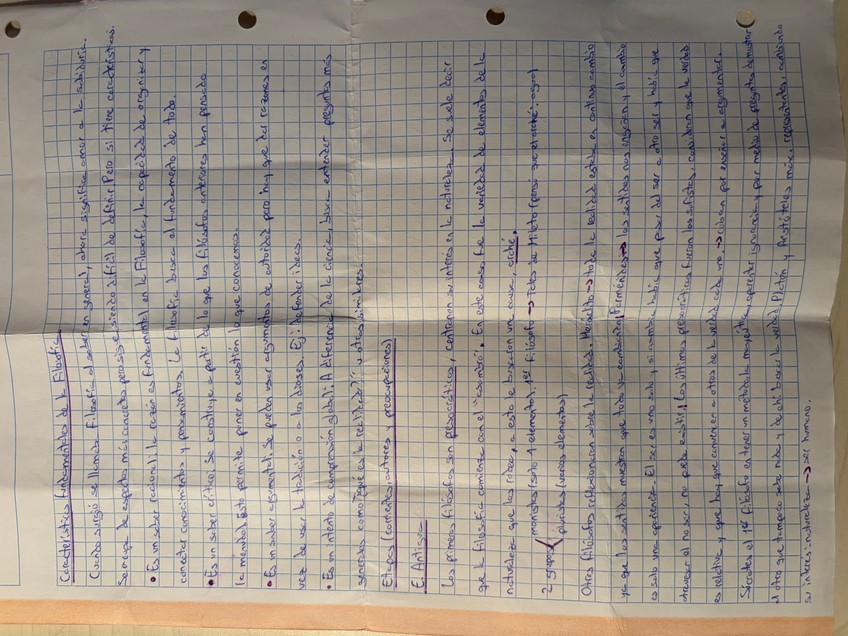 Características fundamentales de la Filosofía
Cuando surgió se llamaba Filosofía al saber en general, ahora significa amor a la sabiduría.
Se ocupa de aspectos más concretos pero sigue siendo difícil de definir. Pero sí tiene características.
• Es un saber racional: la razón es fundamental en la Filosofía, la capacidad de organizar y
conectar conocimientos y pensamientos. La filosofía busca el fundamento de todo.
• Es un saber crítico: Se construye a partir de lo que los filósofos anteriores han pensado
(la mentira) Esto permite poner en cuestión lo que conocemos.
• Es un saber argumental: Se pueden usar argumentos de autoridad pero hay que dar razones en
vez de usar la tradición o a los dioses. Ej: Defender ideas.
• Es un intento de comprensión global: A diferencia de la ciencia, busca entender preguntas más
generales como "¿qué es la realidad?" u otras similares.
Etapas (corrientes, autores y preocupaciones)
E. Antigua
Los primeros filósofos son presocráticos, centraron su interés en la naturaleza. Se suele decir
que la filosofía comienza con el "asombro". En este caso fue la variedad de elementos de la
naturaleza que les rodea, a esto le buscaron una causa, arché.
2 grupos monistas (solo 1 elemento). 1er filósofo → Tales de Mileto (pensó que el arché: agua)
pluralistas (varios elementos)
Otros filósofos reflexionaron sobre la realidad. Heráclito → toda la realidad estaba en continuo cambio
ya que los sentidos muestran que todo va cambiando. Parménides → los sentidos nos engañan y el cambio
es solo una apariencia. El ser es uno solo y si cambia había que pasar del ser a otro ser y había que
atravesar el no ser, no puede existir. Los últimos presocráticos fueron los sofistas, creían que la verdad
es relativa y que hay que convencer a otros de la verdad cada uno → cobran por enseñar a argumentar.
Sócrates el 1er filósofo en tener un método la mayéutica, aparentar ignorancia y por medio de preguntas demostrar
al otro que tampoco sabe nada y de ahí busca la verdad. Platón y Aristóteles máx. representantes, cambiando
su interés: naturaleza → ser humano.